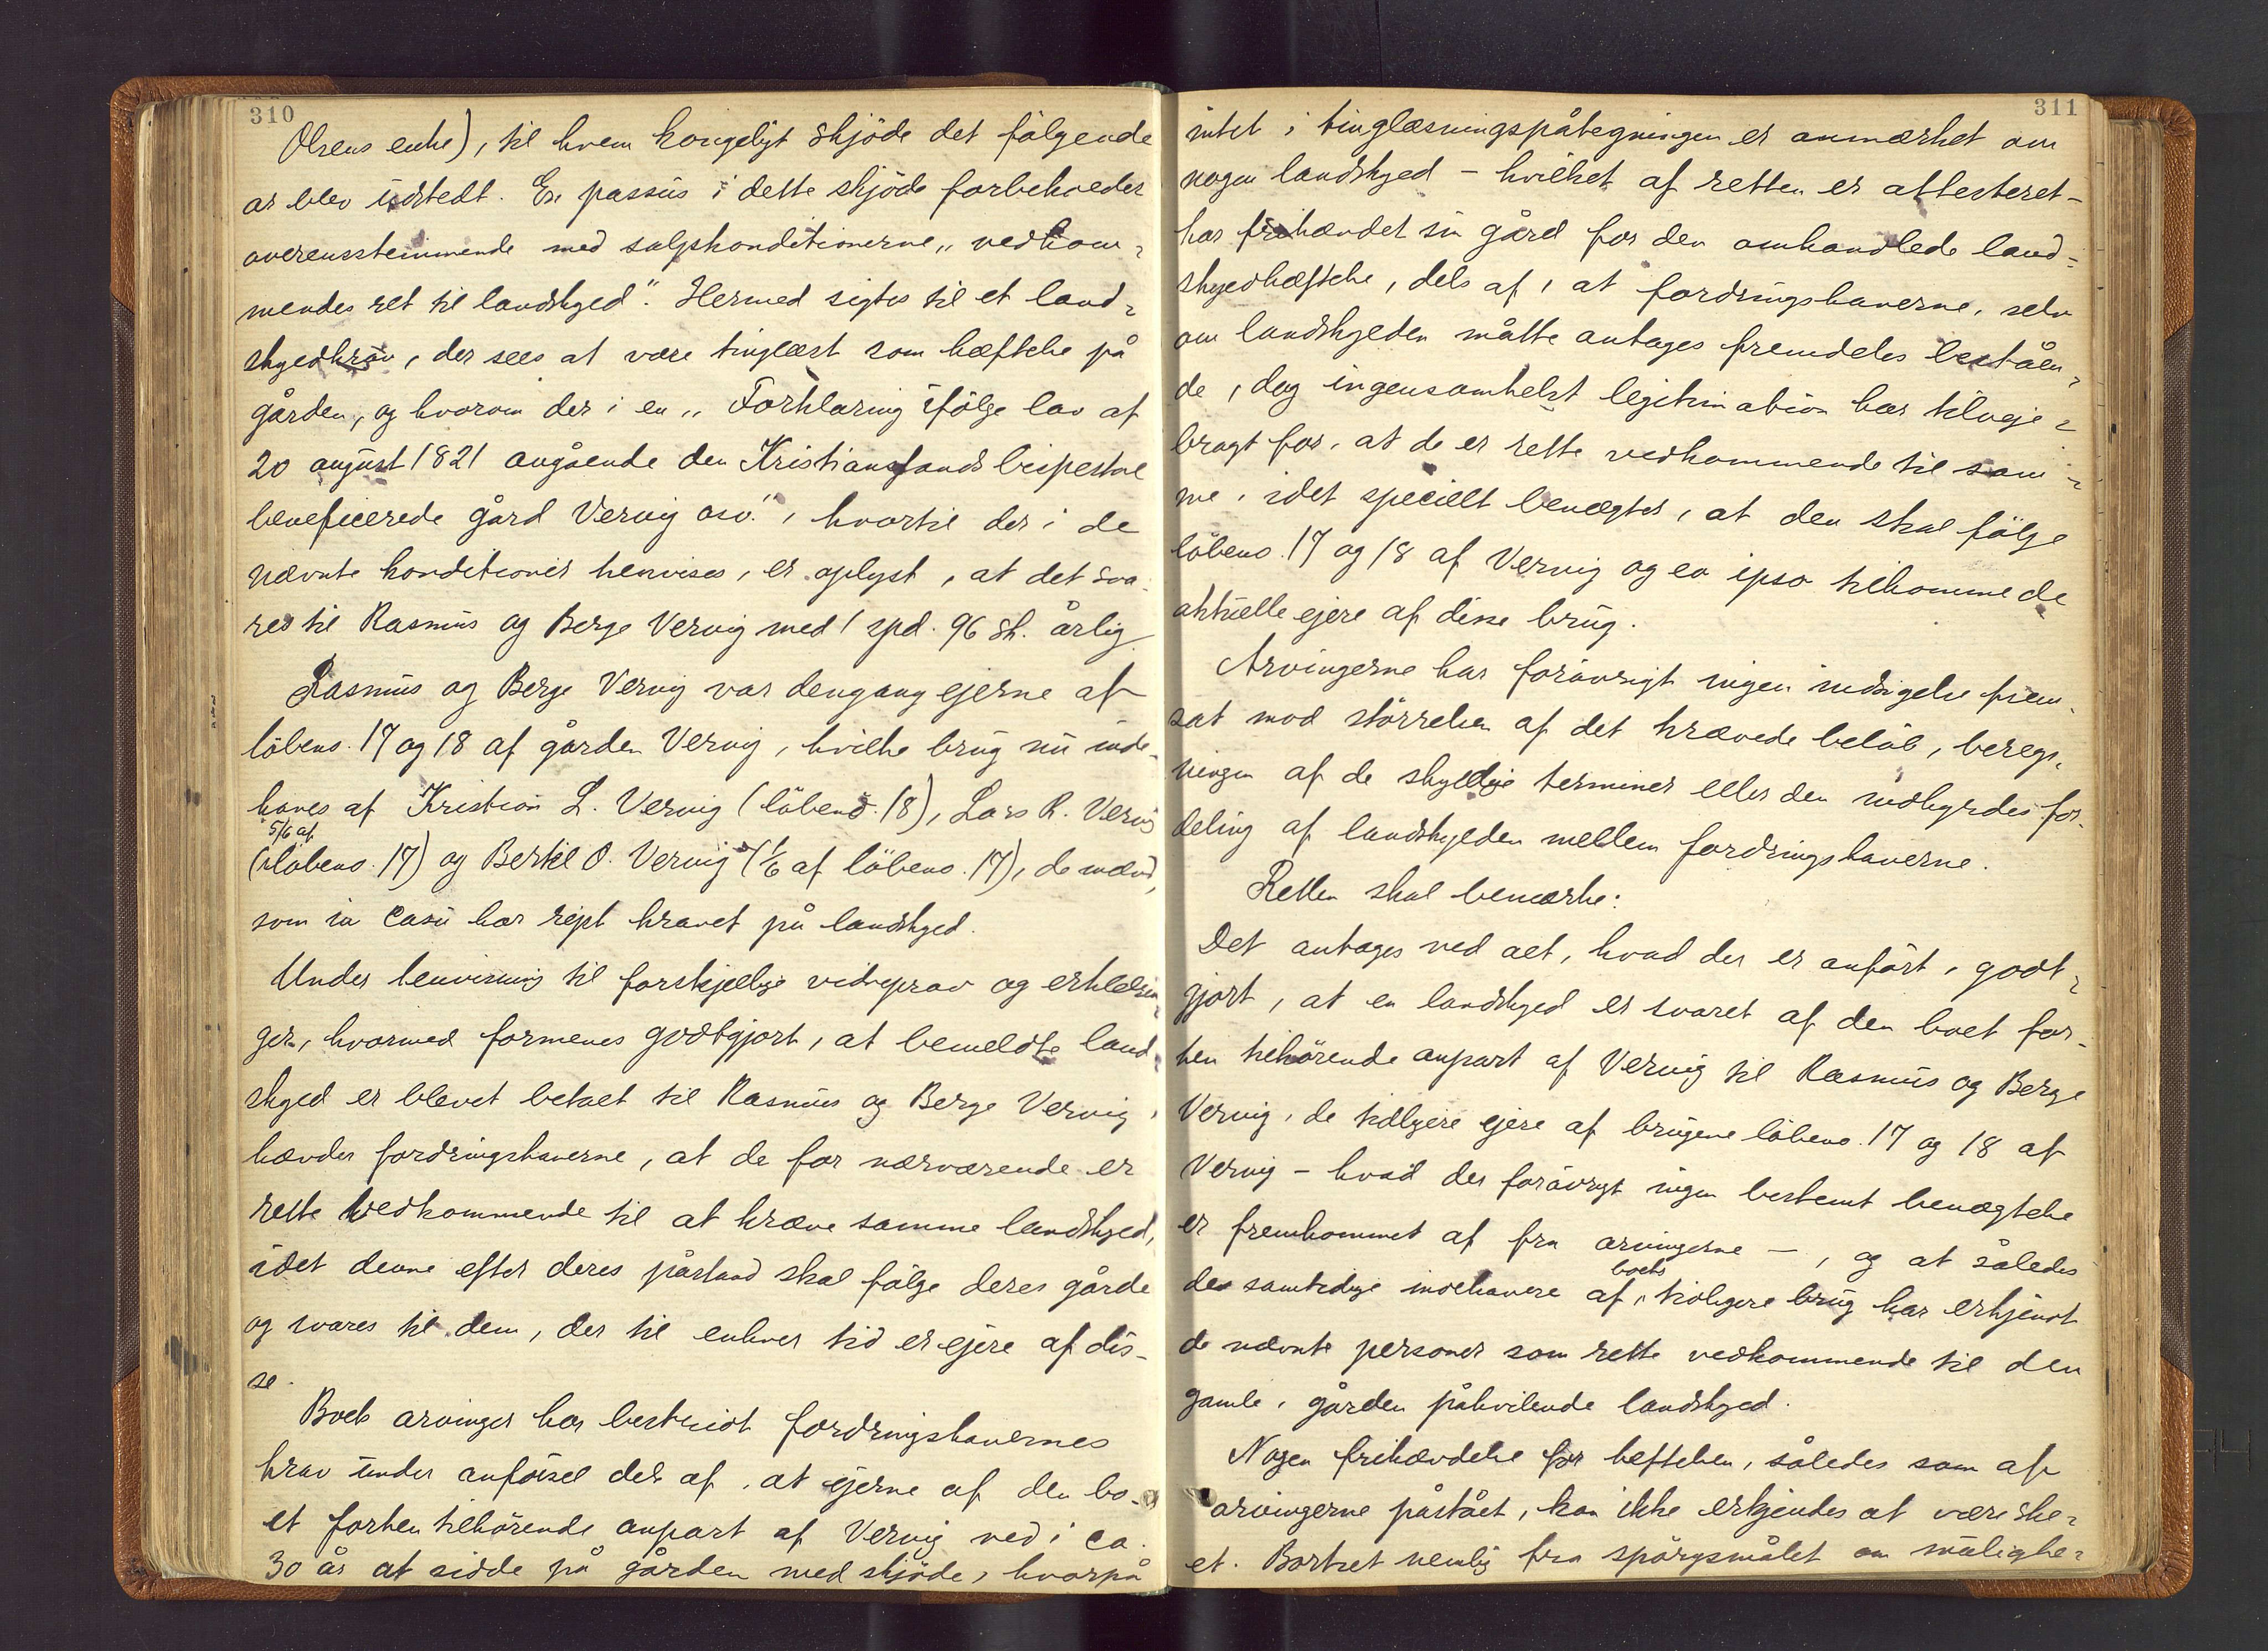 310
Olsens enke), til hvem kongeligt skjöde det fölgende
år blev udstedt. En passus i dette skjöde forbeholder
overensstemmende med salgskonditionerne „vedkom-
mendes ret til landskyld". Hermed sigtes til et land-
skyldkrav, der sees at være tinglæst som hæftelse på
gården, og hvorom der i en „Forklaring ifölge lov af
20 august 1821 angående den Kristianssands bispestol
beneficerede gård Vervig osv.", hvortil der i de
nævnte konditioner henvises, er oplyst, at det sva-
res til Rasmus og Berge Vervig med 1 spd. 96 sk. årlig.
Rasmus og Berge Vervig var dengang ejerne af
löbeno. 17 og 18 af gården Vervig, hvilke brug nu inde-
haves af Kristian L. Vervig (löbeno. 18), Lars R. Vervig
5/6 af
(löbeno. 17) og Bertil O. Vervig (1/6 af löbeno. 17), de mænd,
som in casu har rejst kravet på landskyld.
Under henvisning til forskjellige vidneprov og erklærin-
ger, hvormed formenes godtgjort, at bemeldte land-
skyld er blevet betalt til Rasmus og Berge Vervig,
hævder fordringshaverne, at de for nærværende er
rette vedkommende til at kræve samme landskyld,
idet denne efter deres påstand skal fölge deres gårde
og svares til dem, der til enhver tid er ejere af dis-
se.
Boets arvinger har bestridt fordringshavernes
krav under anförsel dels af, at ejerne af den bo-
et forhen tilhörende anpart af Vervig ved i ca.
30 år at sidde på gården med skjöde, hvorpå
311
intet i tinglæsningspåtegningen er anmærket om
nogen landskyld – hvilket af retten er attesteret –
har frihævdet sin gård for den omhandlede land-
skyldhæftelse, dels af, at fordringshaverne, selv
om landskylden måtte antages fremdeles beståen-
de, dog ingensomhelst legitimation har tilveje-
bragt for, at de er rette vedkommende til sam-
me, idet specielt benægtes, at den skal fölge
löbeno. 17 og 18 af Vervig og eo ipso tilkomme de
aktuelle ejere af disse brug.
Arvingerne har forövrigt ingen indsigelse frem-
sat mod störrelsen af det krævede belöb, bereg-
ningen af de skyldige terminer eller den indbyrdes for-
deling af landskylden mellem fordringshaverne.
Retten skal bemærke:
Det antages ved alt, hvad der er anfört, godt-
gjort, at en landskyld er svaret af den boet for-
hen tilhörende anpart af Vervig til Rasmus og Berge
Vervig, de tidligere ejere af brugene löbeno. 17 og 18 af
Vervig – hvad der forövrigt ingen bestemt benægtelse
er fremkommet af fra arvingerne –, og at således
boets
de samtidige indehavere af tidligere brug har erkjendt
de nævnte personer som rette vedkommende til den
gamle, gården påhvilende landskyld.
Nogen frihævdelse for heftelsen, således som af
arvingerne påstået, kan ikke erkjendes at være ske-
et. Bortset nemlig fra spörgsmålet om mulighe-